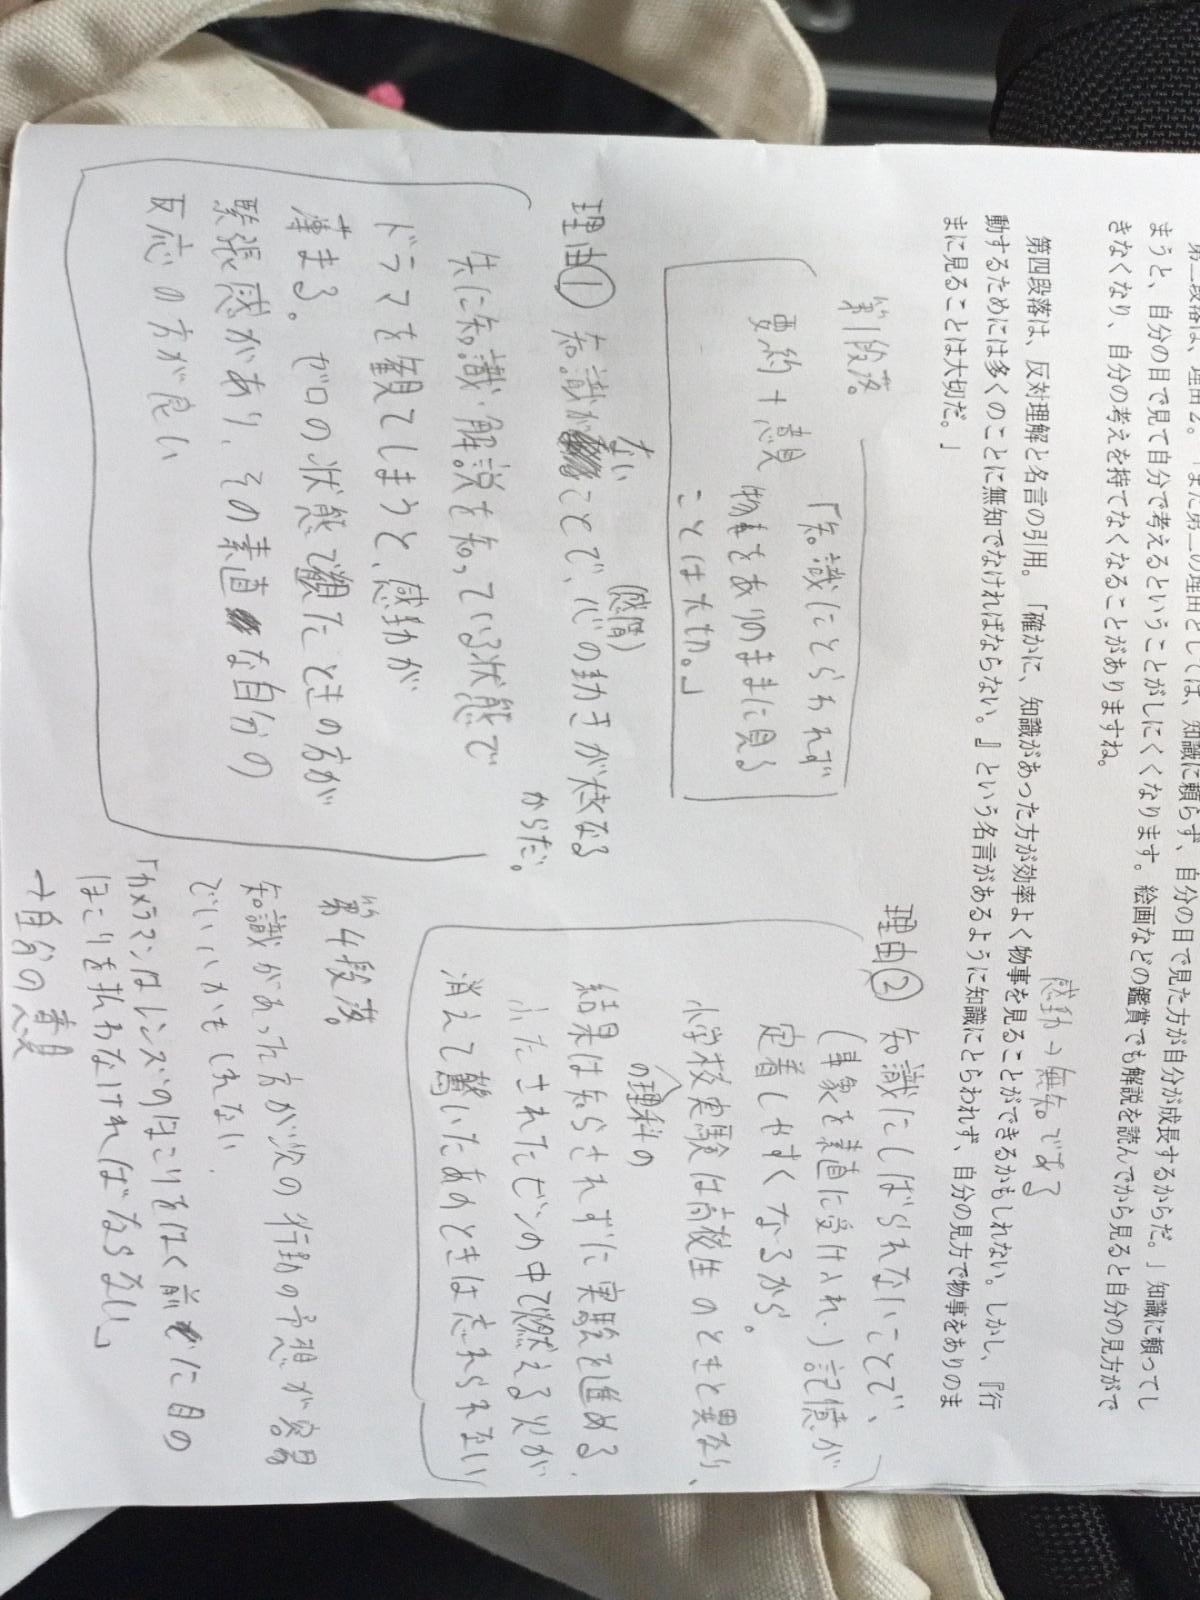 第三段落は、理由2。「また第二の理由としては、知識に頼らず、自分の目で見た方が自分が成長するからだ。」知識に頼ってし
まうと、自分の目で見て自分で考えるということがしにくくなります。絵画などの鑑賞でも解説を読んでから見ると自分の見方がで
きなくなり、自分の考えを持てなくなることがありますね。
感動→無知である
第四段落は、反対理解と名言の引用。「確かに、知識があった方が効率よく物事を見ることができるかもしれない。しかし、『行
動するためには多くのことに無知でなければならない。』という名言があるように知識にとらわれず、自分の見方で物事をありのま
まに見ることは大切だ。」
第1段落
要約+意見
「知識にとらわれず
物事をありのままに見る
ことは大切。」
理由① 知識がないことで、心の動き(感情)が大きくなる
からだ。
先に知識・解説を知っている状態で
ドラマを観てしまうと、感動が
薄まる。ゼロの状態で観たときの方が
緊張感があり、その素直な自分の
反応の方が良い
理由② 知識にしばられないことで、
(事象を素直に受け入れ)記憶が
定着しやすくなるから。
小学校の理科の実験は高校生のときと異なり、
結果は知らされずに実験を進める。
ふたされたビンの中で燃える火が
消えて驚いたあのときは忘れられない
第4段落
知識があった方が次の行動の予想が容易
でいいかもしれない
「カメラマンはレンズのほこりをはく前に目の
ほこりを払わなければならない」
+自分の意見